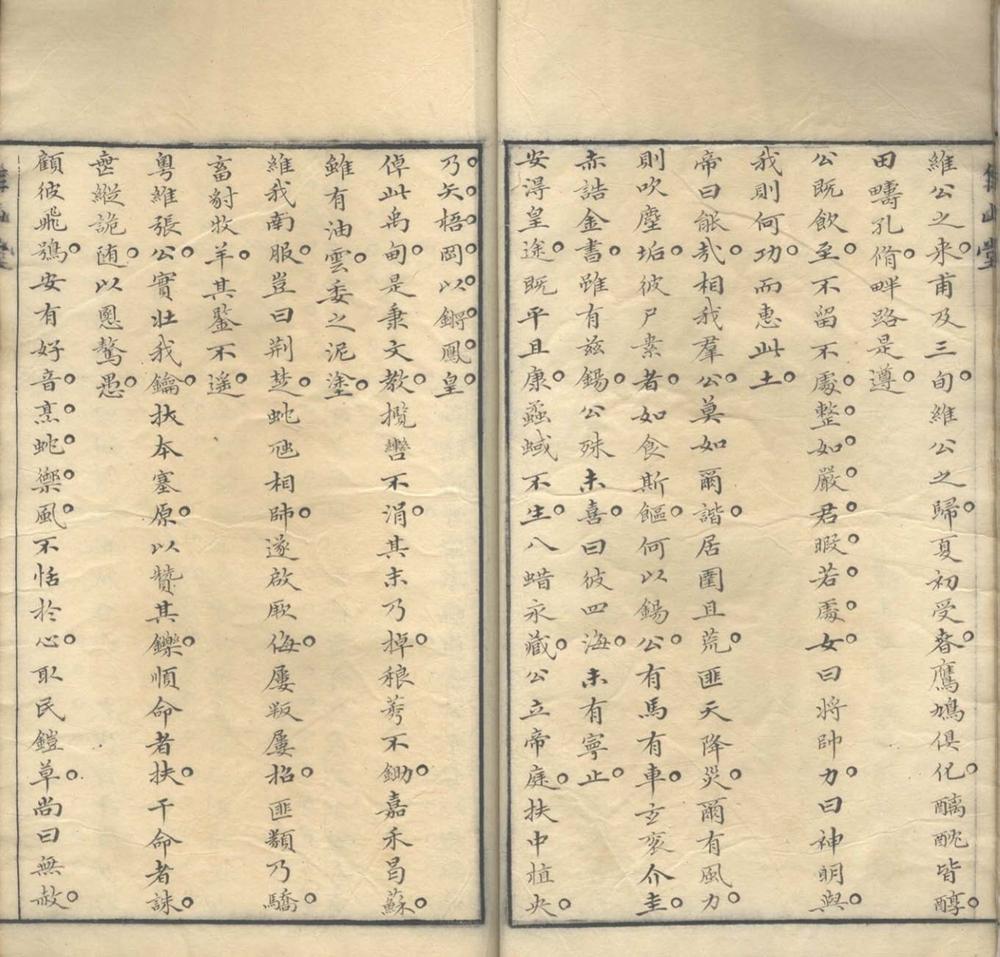 維公之來甫及三旬維公之歸夏初受春鷹鳩俱化醨醜皆醇
田疇孔脩畔路是遵
公既飲至不留不處整如嚴君暇若處女曰將帥力曰神明與
我則何功而惠此土
帝曰飯哉相我羣公莫如爾諧居圉且荒匪天降災爾有風力
則吹塵垢彼尸素者如食斯饇何以錫公有馬有車玄袞介圭
赤誥金書雖有兹錫公殊未喜曰彼四海未有寧止
安得皇途既平且康蟊蜮不生八蜡永藏公立帝庭扶中植央
乃矢梧岡以鏘鳳皇
倬此禹甸是秉文教攬轡不涓其未乃掉稂莠不鋤嘉禾曷蘇
雖有油雲委之泥塗
維我南服豈曰荆楚虵虺相師遂啟厥侮屢叛屢招匪類乃驕
畜豺牧羊其鑒不遙
粵維張公實壯我鑰扶本塞原以贊其鑠順命者扶干命者誅
無縱詭随以慁驁愚
顧彼飛鴞安有好音烹虵禦風不恬於心取民鎧草尚曰無赦